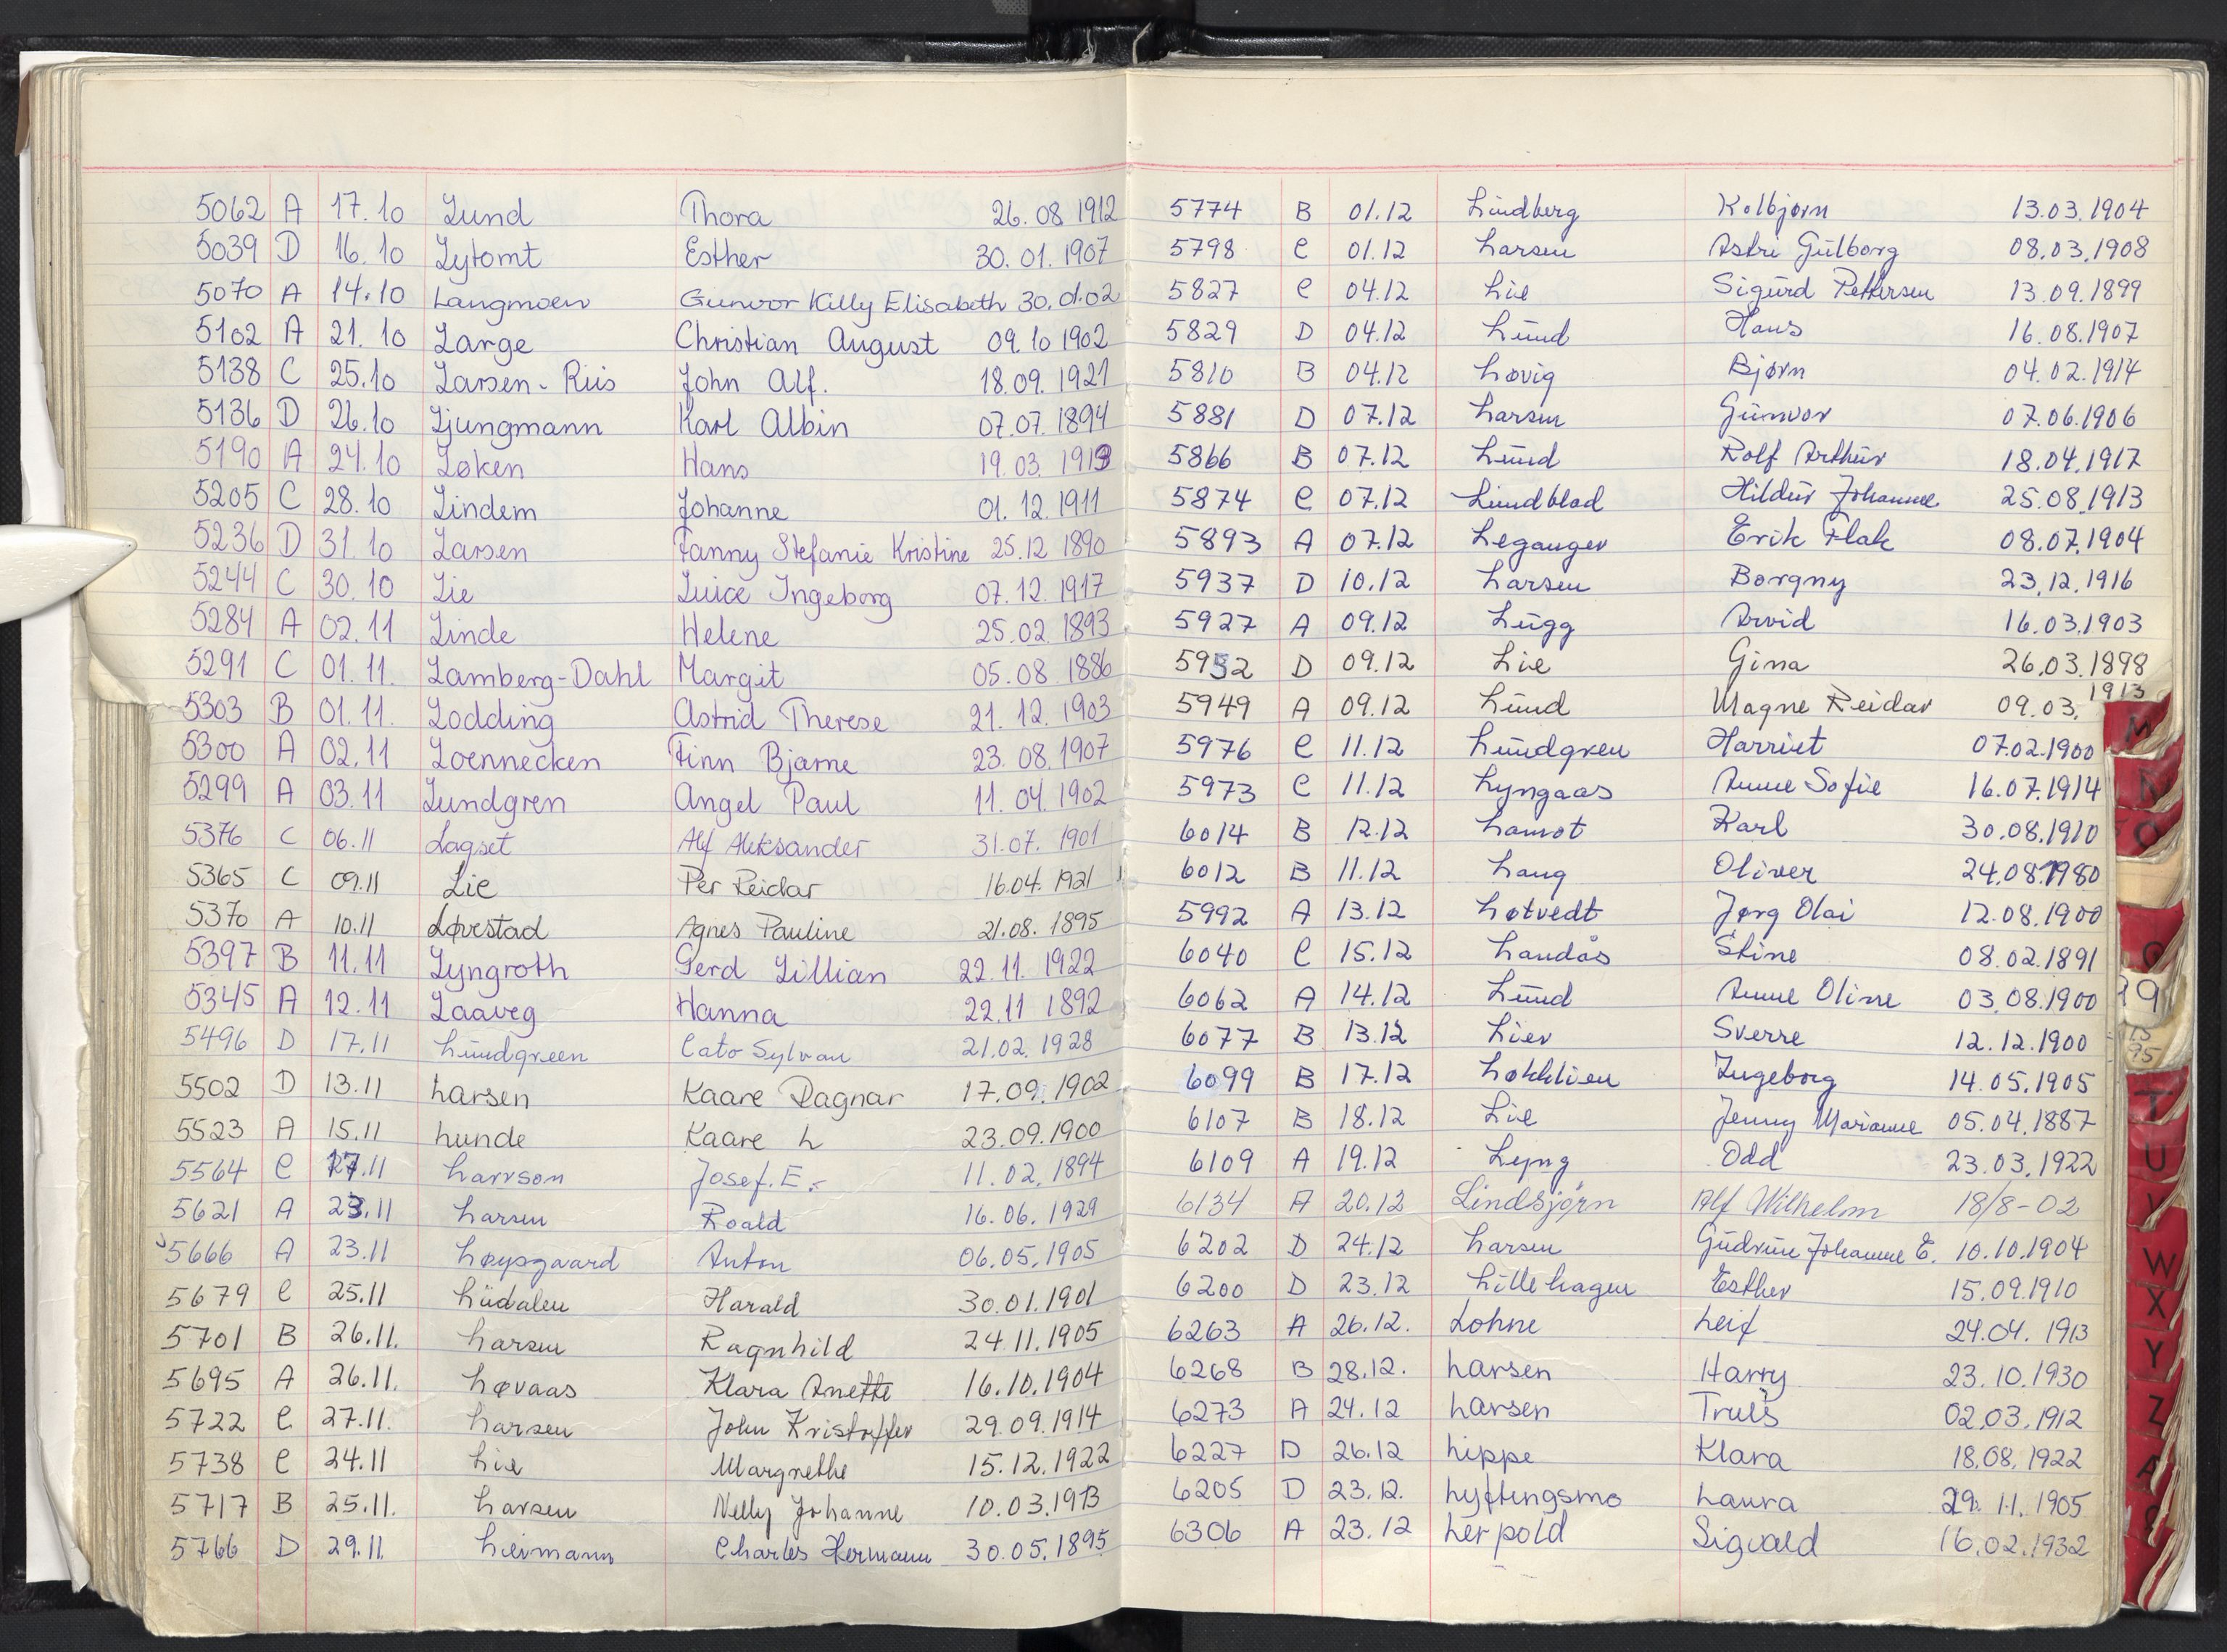 5062 A 17.10 Lund Thora 26.08 1912
5039 D 16.10 Lytomt Esther 30.01.1907
5070 A 14.10 Langmoen Gunvor Killy Elisabeth 30.01.02
5102 A 21.10 Large Christian August 09.10 1902
5138 C 25.10 Larsen-Riis John Alf. 18.09.1921
5136 D 26.10 Ljungmann Karl Albin 07.07.1894
5190 A 24.10 Løken Hans 19.03.1913
5205 C 28.10 Lindem Johanne 01.12.1911
5236 D 31.10 Larsen Fanny Stefanie Kristine 25.12 1890
5244 C 30.10 Lie Luice Ingeborg 07.12.1917
5284 A 02.11 Linde Helene 25.02.1893
5291 C 01.11. Lamberg-Dahl Margit 05.08 1886
5303 B 01.11. Lodding Astrid Therese 21.12.1903
5300 A 02.11 Loennecken Finn Bjarne 23.08.1907
5299 A 03.11 Lundgren Angel Paul 11.04.1902
5376 C 06.11 Lagset Alf Aleksander 31.07.1901
5365 C 09.11 Lie Per Reidar 16.04.1921
5370 A 10.11 Løvestad Agnes Pauline 21.08.1895
5397 B 11.11 Lyngroth Gerd Lillian 22.11.1922
5345 A 12.11 Laaveg Hanna 22.11 1892
5496 D 17.11 Lundgreen Cato Sylvan 21.02.1928
5502 D 13.11 Larsen Kaare Ragnar 17.09.1902
5523 A 15.11 Lunde Kaare L 23.09.1900
5564 C 17.11 Larsson Josef. E. 11.02.1894
5621 A 23.11 Larsen Roald 16.06.1929
5666 A 23.11 Løysgaard Anton 06.05.1905
5679 C 25.11 Liidalen Harald 30.01.1901
5701 B 26.11. Larsen Ragnhild 24.11.1905
5695 A 26.11. Løvaas Klara Anette 16.10.1904
5722 C 27.11. Larsen John Kristoffer 29.09.1914
5738 C 24.11 Lie Margrethe 15.12.1922
5717 B 25.11. Larsen Nelly Johanne 10.03.1913
5766 D 29.11. Liermann Charles Hermann 30.05.1895
5774 B 01.12 Lindberg Kolbjørn 13.03.1904
5798 C 01.12 Larsen Astri Gulborg 08.03.1908
5827 C 04.12 Lie Sigurd Pettersen 13.09.1899
5829 D 04.12 Lund Hans 16.08.1907
5810 B 04.12 Løvig Bjørn 04.02.1914
5881 D 07.12 Larsen Gunvor 07.06.1906
5866 B 07.12 Lund Rolf Arthur 18.04.1917
5874 C 07.12 Lundblad Hildur Johanne 25.08.1913
5893 A 07.12 Leganger Erik Flak 08.07.1904
5937 D 10.12 Larsen Borgny 23.12.1916
5927 A 09.12 Lugg Arvid 16.03.1903
5952 D 09.12 Lie Gina 26.03.1898
5949 A 09.12 Lund Magne Reidar 09.03.1913
5976 C 11.12 Lundgren Harriet 07.02.1900
5973 C 11.12 Lyngaas Anne Sofie 16.07.1914
6014 B 12.12 Lamot Karl 30.08.1910
6012 B 11.12 Lang Oliver 24.08.1980
5992 A 13.12 Løtvedt Jørg Olai 12.08.1900
6040 C 15.12 Landås Stine 08.02.1891
6062 A 14.12 Lund Anne Oline 03.08.1900
6077 B 13.12 Lier Sverre 12.12.1900
6099 B 17.12 Løkklien Ingeborg 14.05.1905
6107 B 18.12 Lie Jenny Marianne 05.04.1887
6109 A 19.12 Lyng Odd 23.03.1922
6134 A 20.12 Lindsjørn Alf Wilhelm 18/8-02
6202 D 24.12 Larsen Gudrun Johanne E. 10.10.1904
6200 D 23.12 Lillehagen Esther 15.09.1910
6263 A 26.12. Lohne Leif 24.04.1913
6268 B 28.12. Larsen Harry 23.10.1930
6273 A 24.12 Larsen Truls 02.03.1912
6227 D 26.12 Lippe Klara 18.08.1922
6205 D 23.12. Lyftingsmo Laura 29.11.1905
6306 A 23.12 Lerpold Sigvald 16.02.1932
M
O
T
U
V
W
X
Y
Z